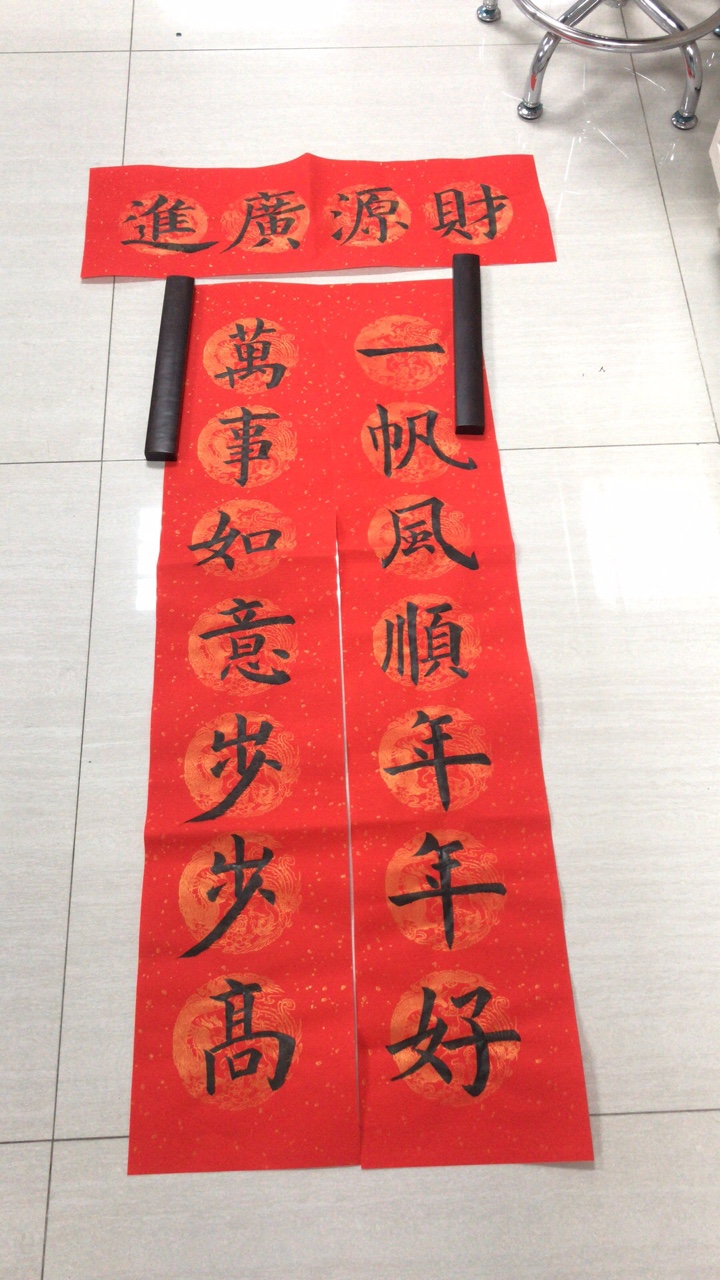 財源廣進
一帆風順年年好
萬事如意步步高